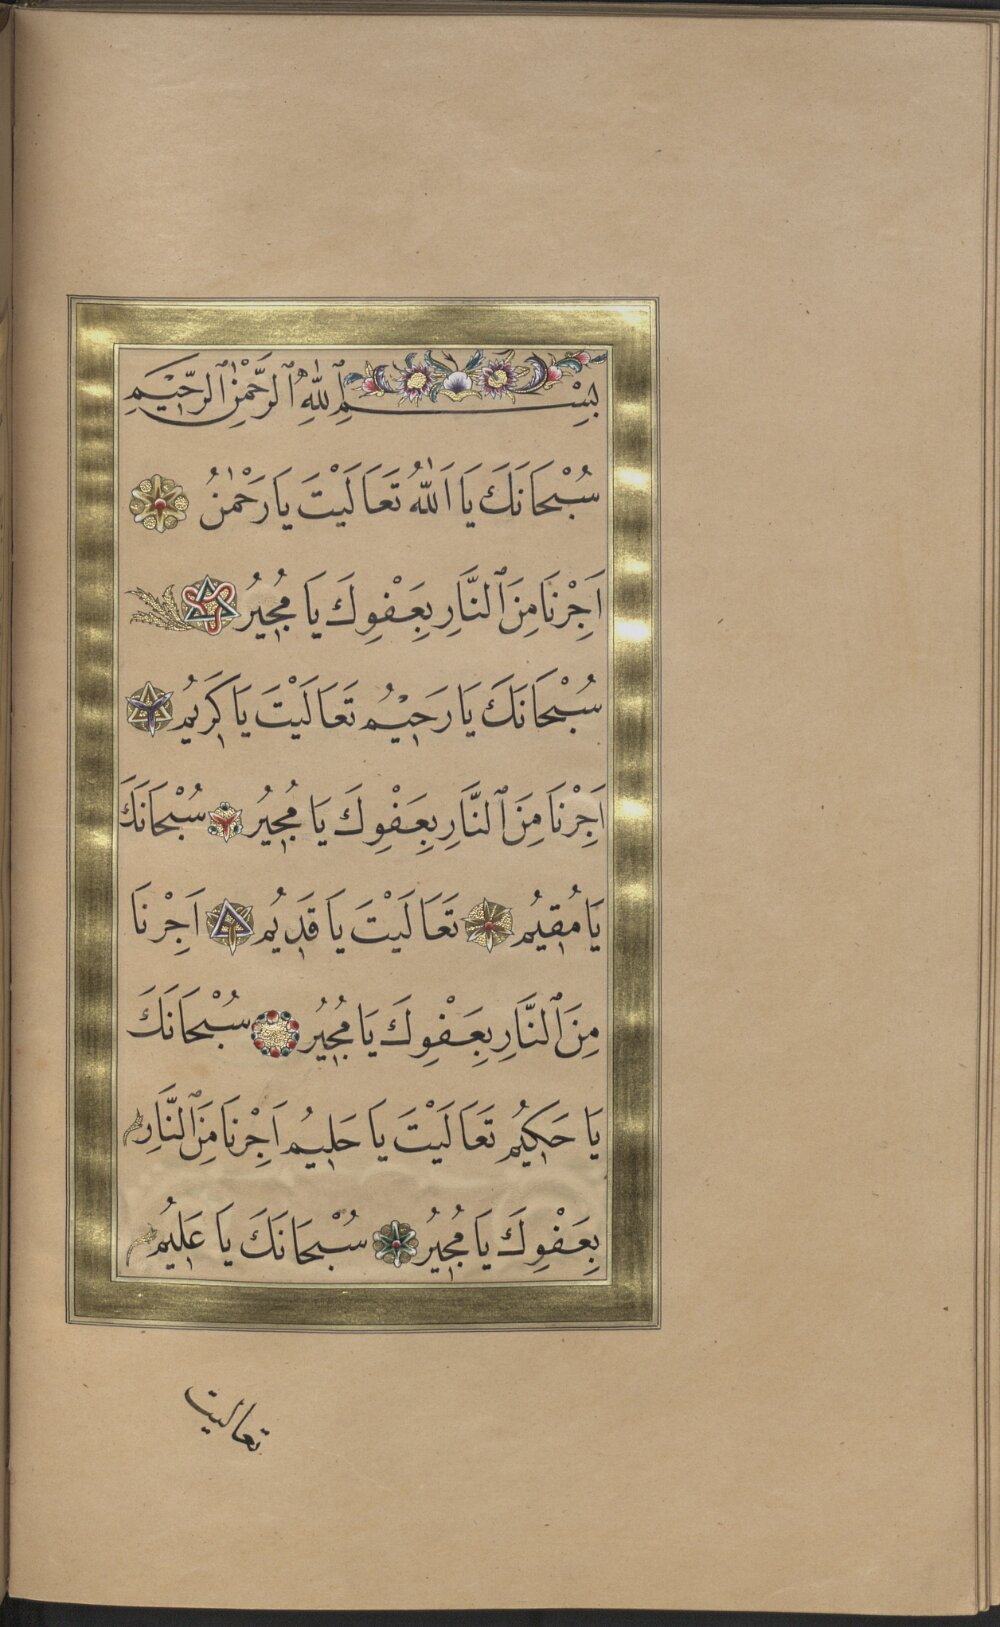 بِسْمِ ٱللّٰهِ ٱلرَّحْمٰنِ ٱلرَّحِيْمِ
سُبْحَانَكَ يَا اَللّٰهُ تَعَالَيْتَ يَا رَحْمٰنُ
اَجِرْنَا مِنَ ٱلنَّارِ بِعَفْوِكَ يَا مُجِيْرُ
سُبْحَانَكَ يَا رَحِيْمُ تَعَالَيْتَ يَا كَرِيْمُ
اَجِرْنَا مِنَ ٱلنَّارِ بِعَفْوِكَ يَا مُجِيْرُ سُبْحَانَكَ
يَا مُقِيْمُ تَعَالَيْتَ يَا قَدِيْمُ اَجِرْنَا
مِنَ ٱلنَّارِ بِعَفْوِكَ يَا مُجِيْرُ سُبْحَانَكَ
يَا حَكِيْمُ تَعَالَيْتَ يَا حَلِيْمُ اَجِرْنَا مِنَ ٱلنَّارِ
بِعَفْوِكَ يَا مُجِيْرُ سُبْحَانَكَ يَا عَلِيْمُ
تعاليت